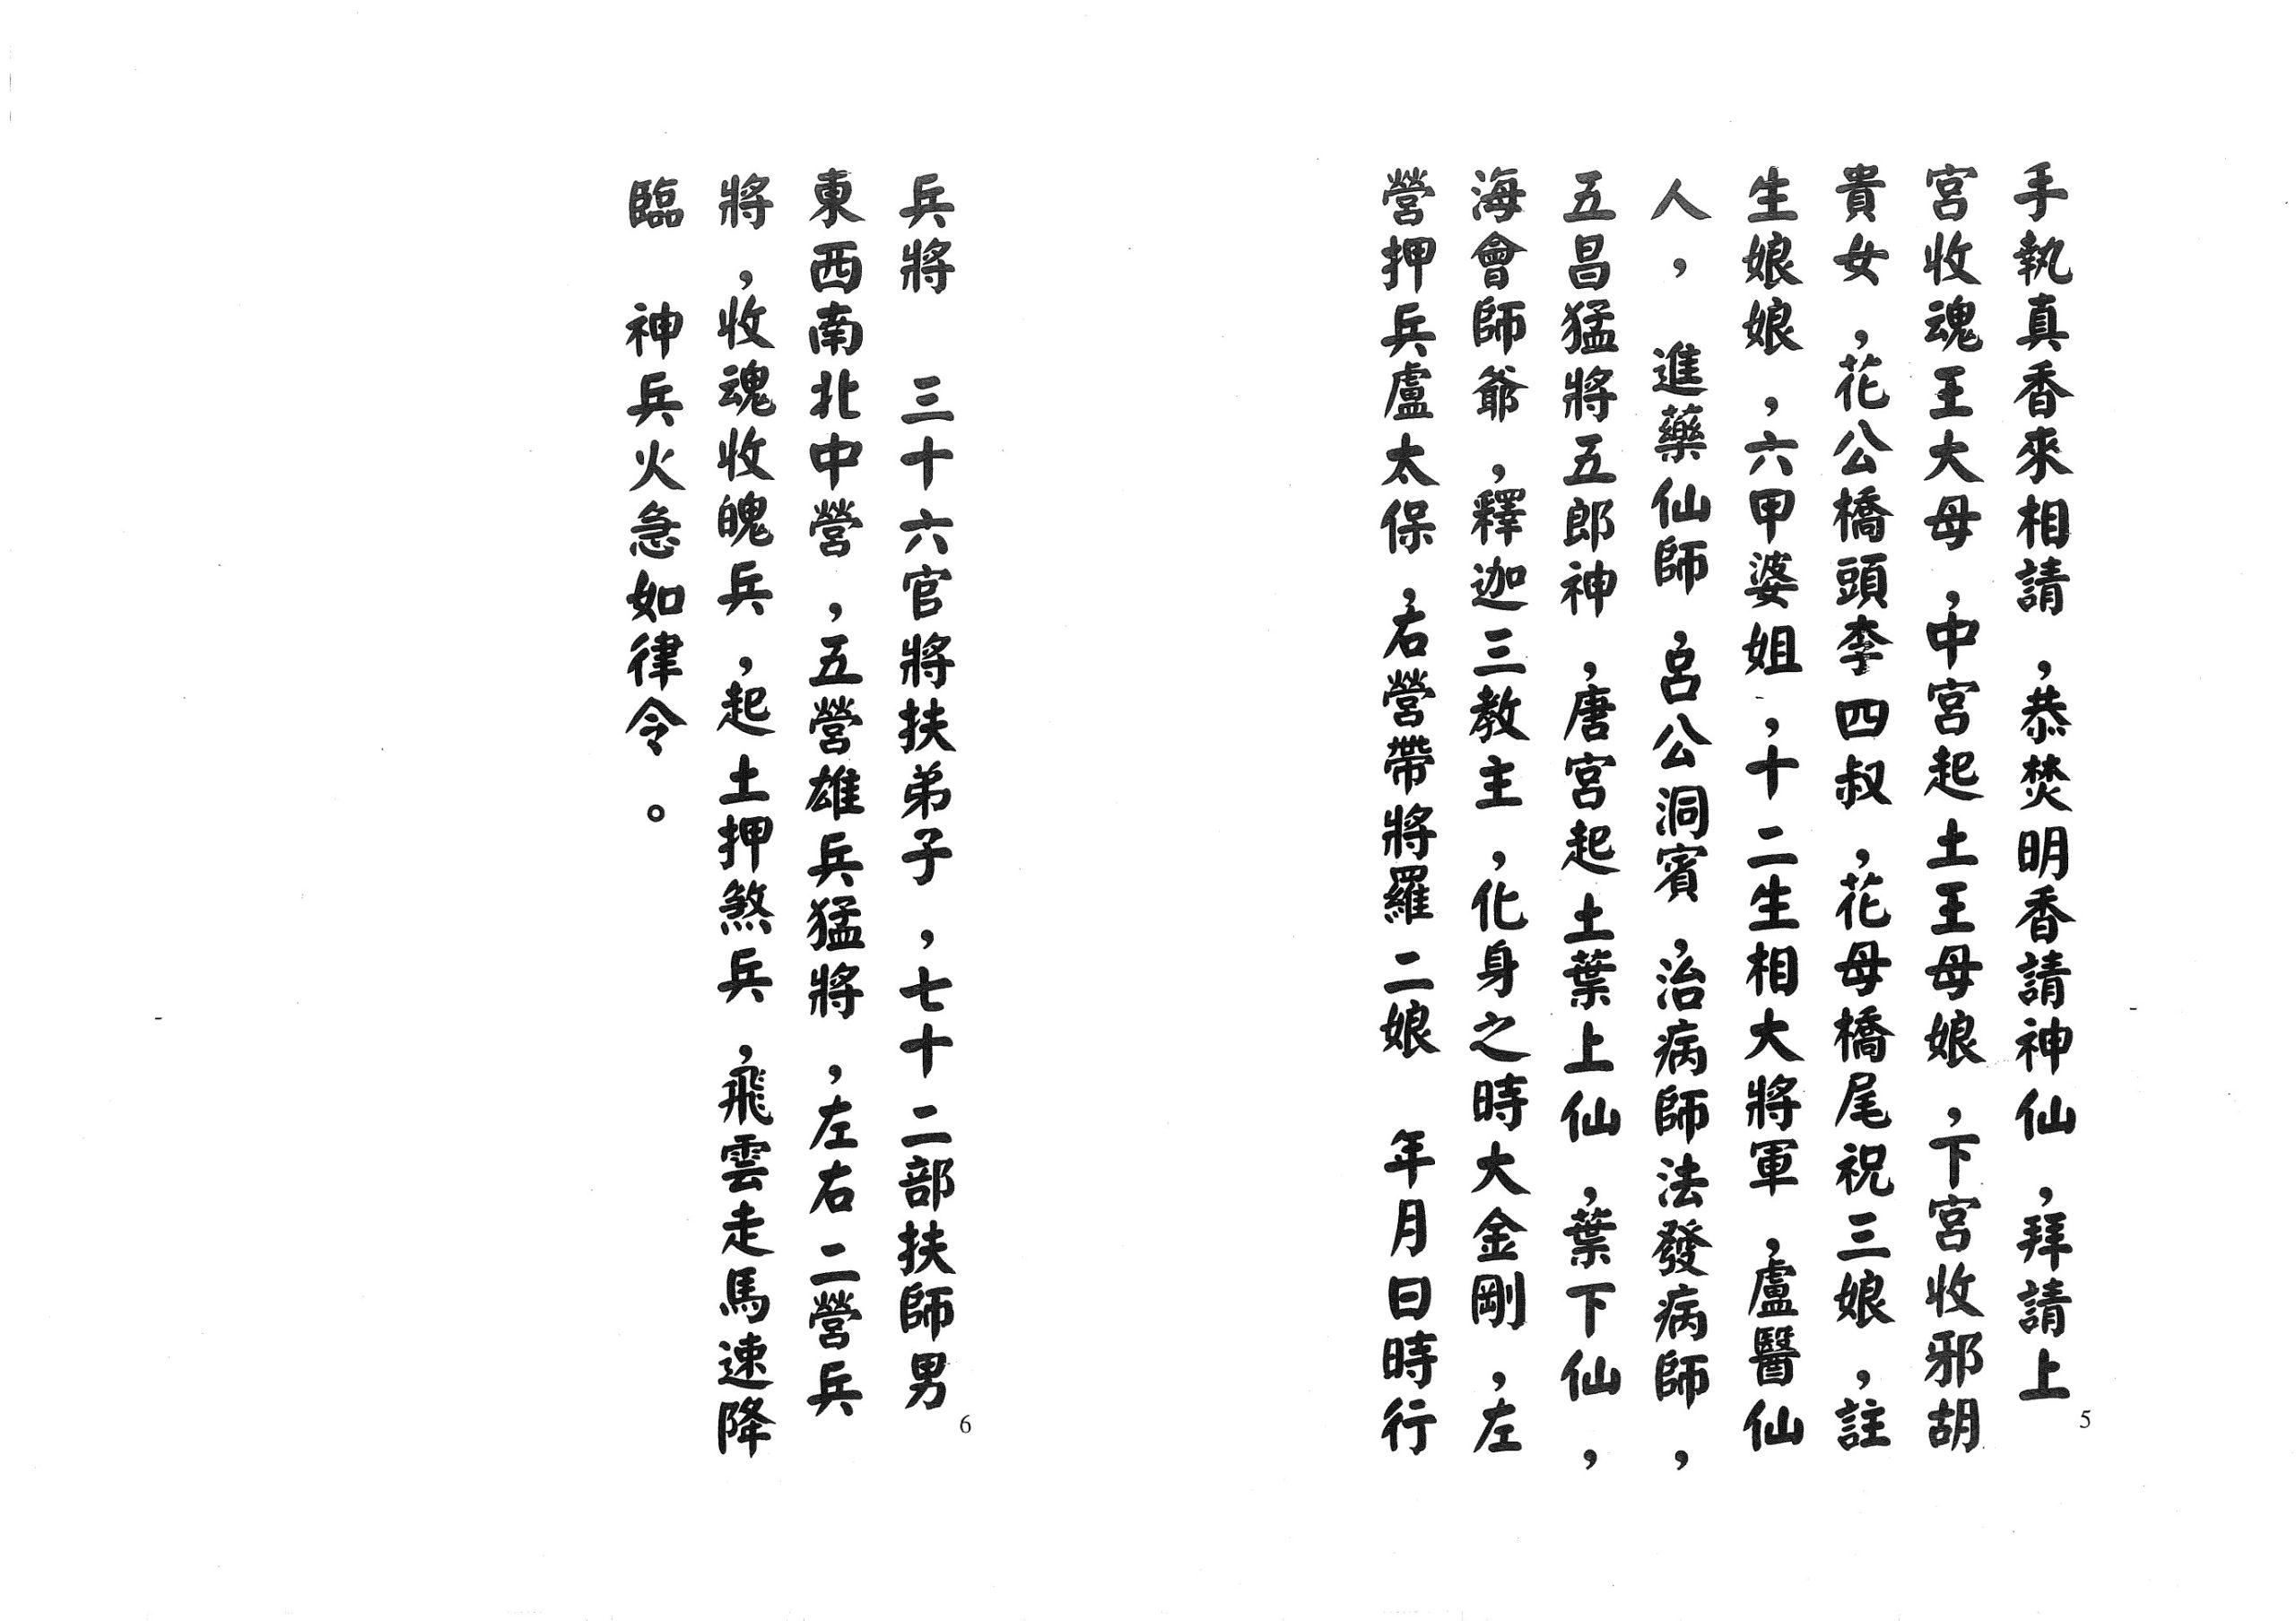 手執真香來相請，恭焚明香請神仙，拜請上
宮收魂王大母，中宮起土王母娘，下宮收邪胡
貴女，花公橋頭李四叔，花母橋尾祝三娘，註
生娘娘，六甲婆姐，十二生相大將軍，盧醫仙
人，進藥仙師 呂公洞賓，治病師法發病師，
五昌猛將五郎神，唐宮起土葉上仙，葉下仙，
海會師爺，釋迦三教主，化身之時大金剛，左
營押兵盧太保，右營帶將羅二娘 年月日時行
5
兵將 三十六官將扶弟子，七十二部扶師男
東西南北中營，五營雄兵猛將，左右二營兵
將，收魂收魄兵，起土押煞兵，飛雲走馬速降
臨 神兵火急如律令。
6